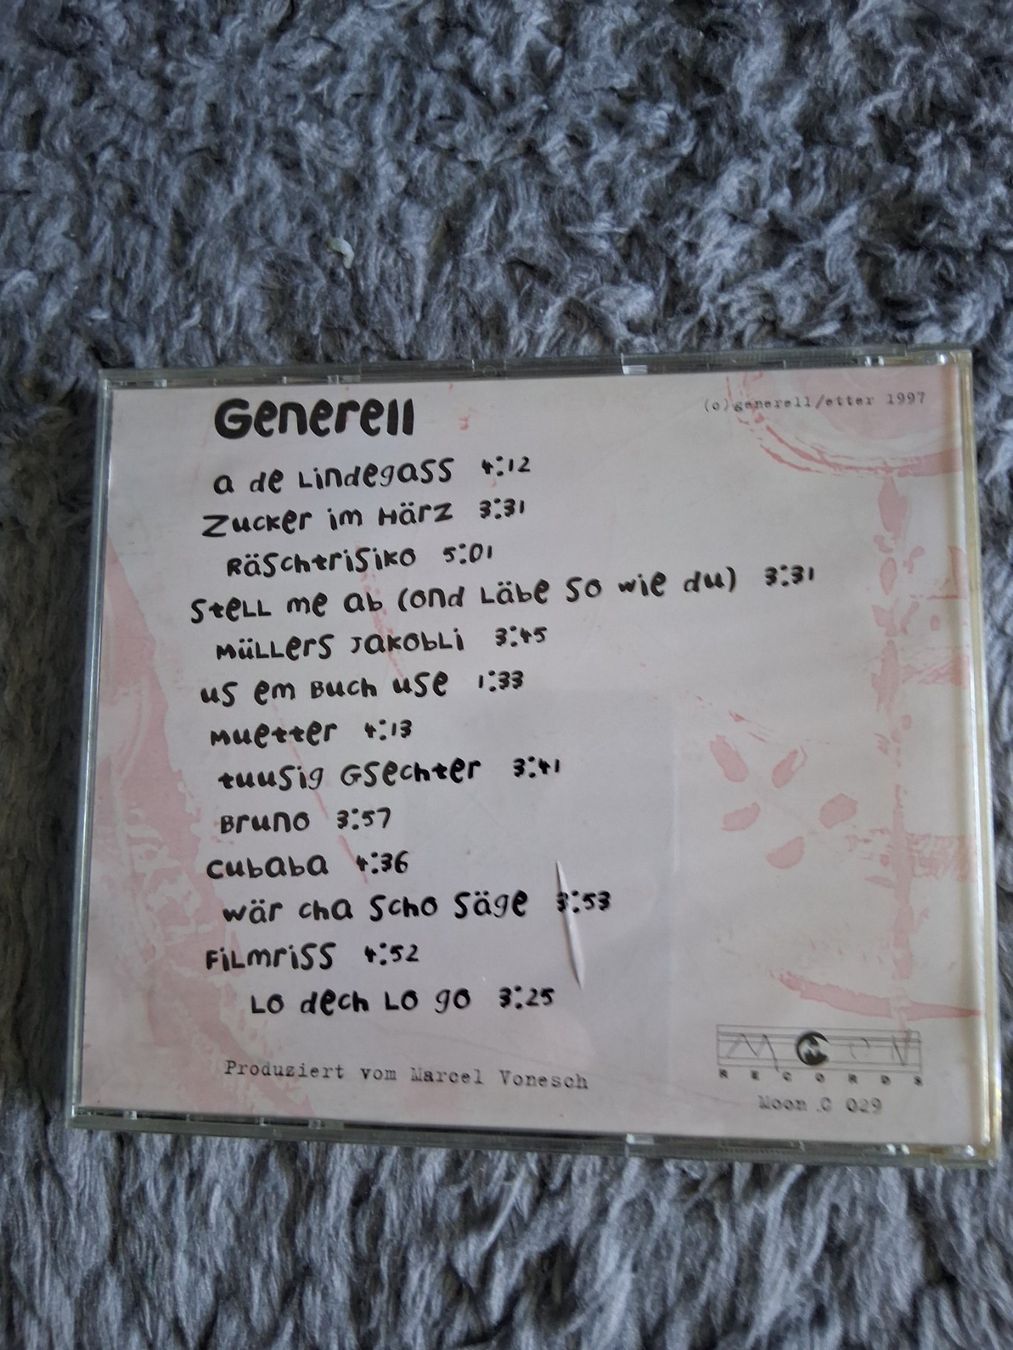 Generell
(c)generell/etter 1997
a de Lindegass 4:12
Zucker im Härz 3:31
Räschtrisiko 5:01
Stell me ab (ond Läbe so wie du) 3:31
Müllers Jakobli 3:45
us em Buch use 1:33
Muetter 4:13
tuusig Gsechter 3:41
Bruno 3:57
Cubaba 4:36
wär cha scho säge 3:53
Filmriss 4:52
Lo dech lo go 3:25
Produziert vom Marcel Vonesch
MOON
RECORDS
Moon C 029